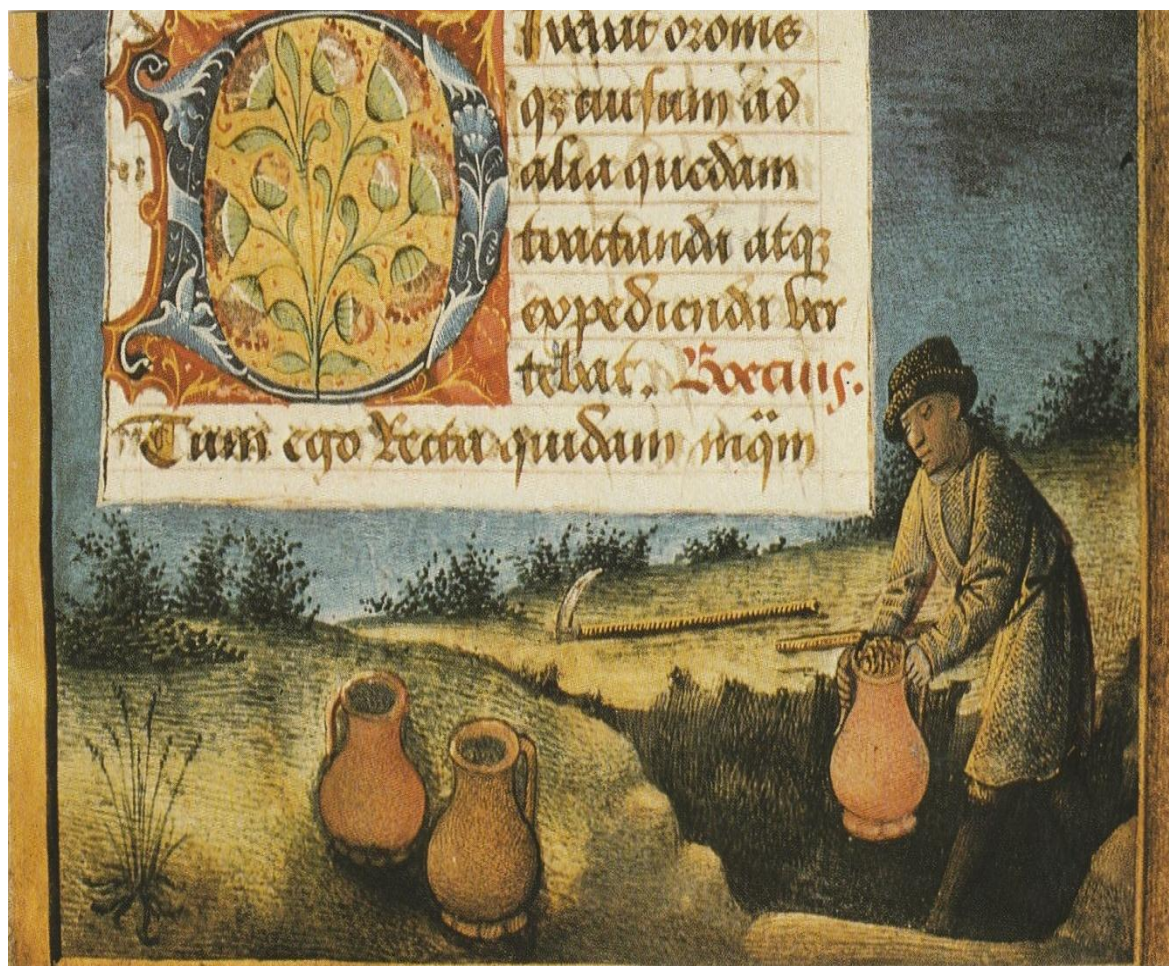 Dixerat oronis
qꝫ cursum ad
alia quedam
tractanda atqꝫ
expedienda ver
tebat. Boecius.
Tum ego Recta quidem inqm